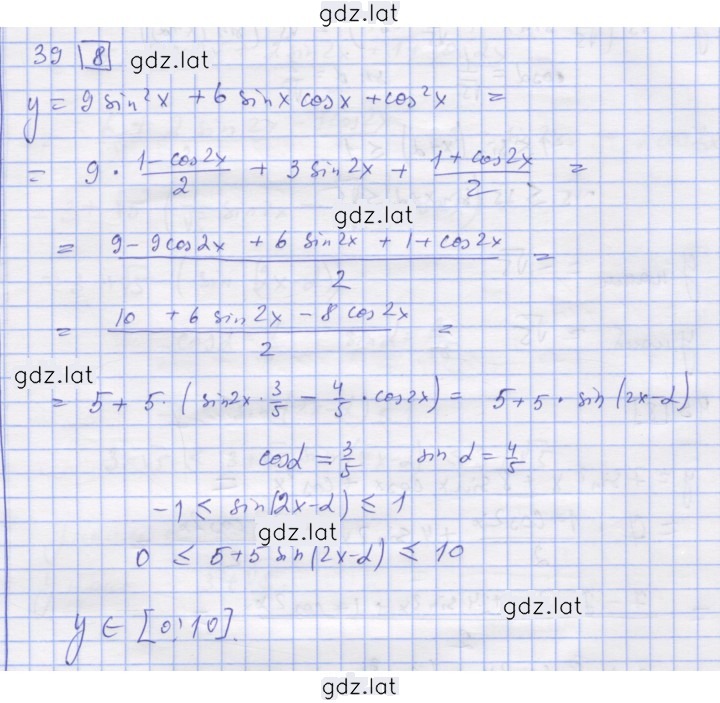 gdz.lat
39 8 gdz.lat
y = 9 sin²x + 6 sinx cosx + cos²x =
= 9 · (1 - cos2x)/2 + 3 sin2x + (1 + cos2x)/2 =
gdz.lat
= (9 - 9cos2x + 6 sin2x + 1 + cos2x)/2 =
= (10 + 6 sin2x - 8 cos2x)/2 =
gdz.lat
= 5 + 5 · (sin2x · 3/5 - 4/5 · cos2x) = 5 + 5 · sin(2x-α)
cosα = 3/5 sin α = 4/5
-1 ≤ sin(2x-α) ≤ 1
gdz.lat
0 ≤ 5+5 sin(2x-α) ≤ 10
gdz.lat
y ∈ [0;10].
gdz.lat